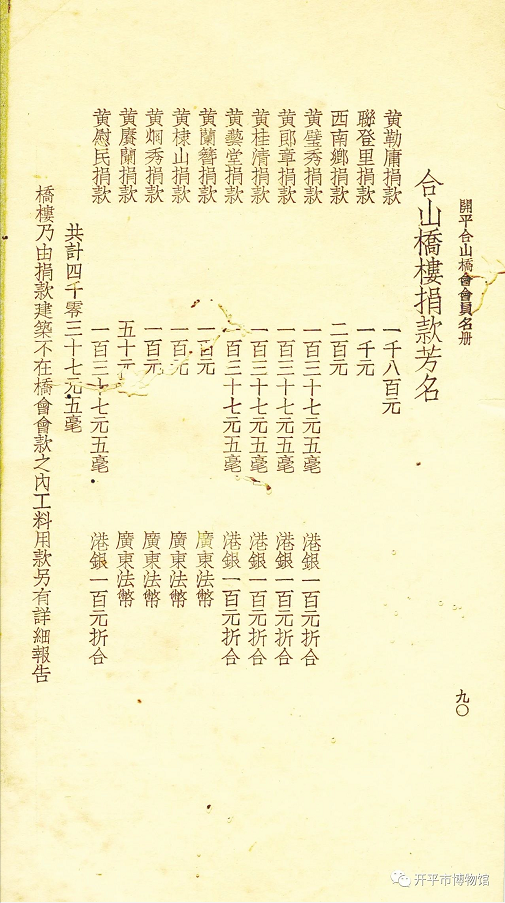 開平合山橋會會員名册 九〇
合山橋樓捐款芳名
黄勒庸捐款 一千八百元
聯登里捐款 一千元
西南鄉捐款 二百元
黄璧秀捐款 一百三十七元五毫 港銀一百元折合
黄郎章捐款 一百三十七元五毫 港銀一百元折合
黄桂清捐款 一百三十七元五毫 港銀一百元折合
黄藝堂捐款 一百三十七元五毫 港銀一百元折合
黄蘭簪捐款 一百元 廣東法幣
黄棣山捐款 一百元 廣東法幣
黄炯秀捐款 一百元 廣東法幣
黄賡蘭捐款 五十元 廣東法幣
黄慰民捐款 一百三十七元五毫 港銀一百元折合
共計四千零三十七元五毫
橋樓乃由捐款建築不在橋會會款之內工料用款另有詳細報告
开平市博物馆